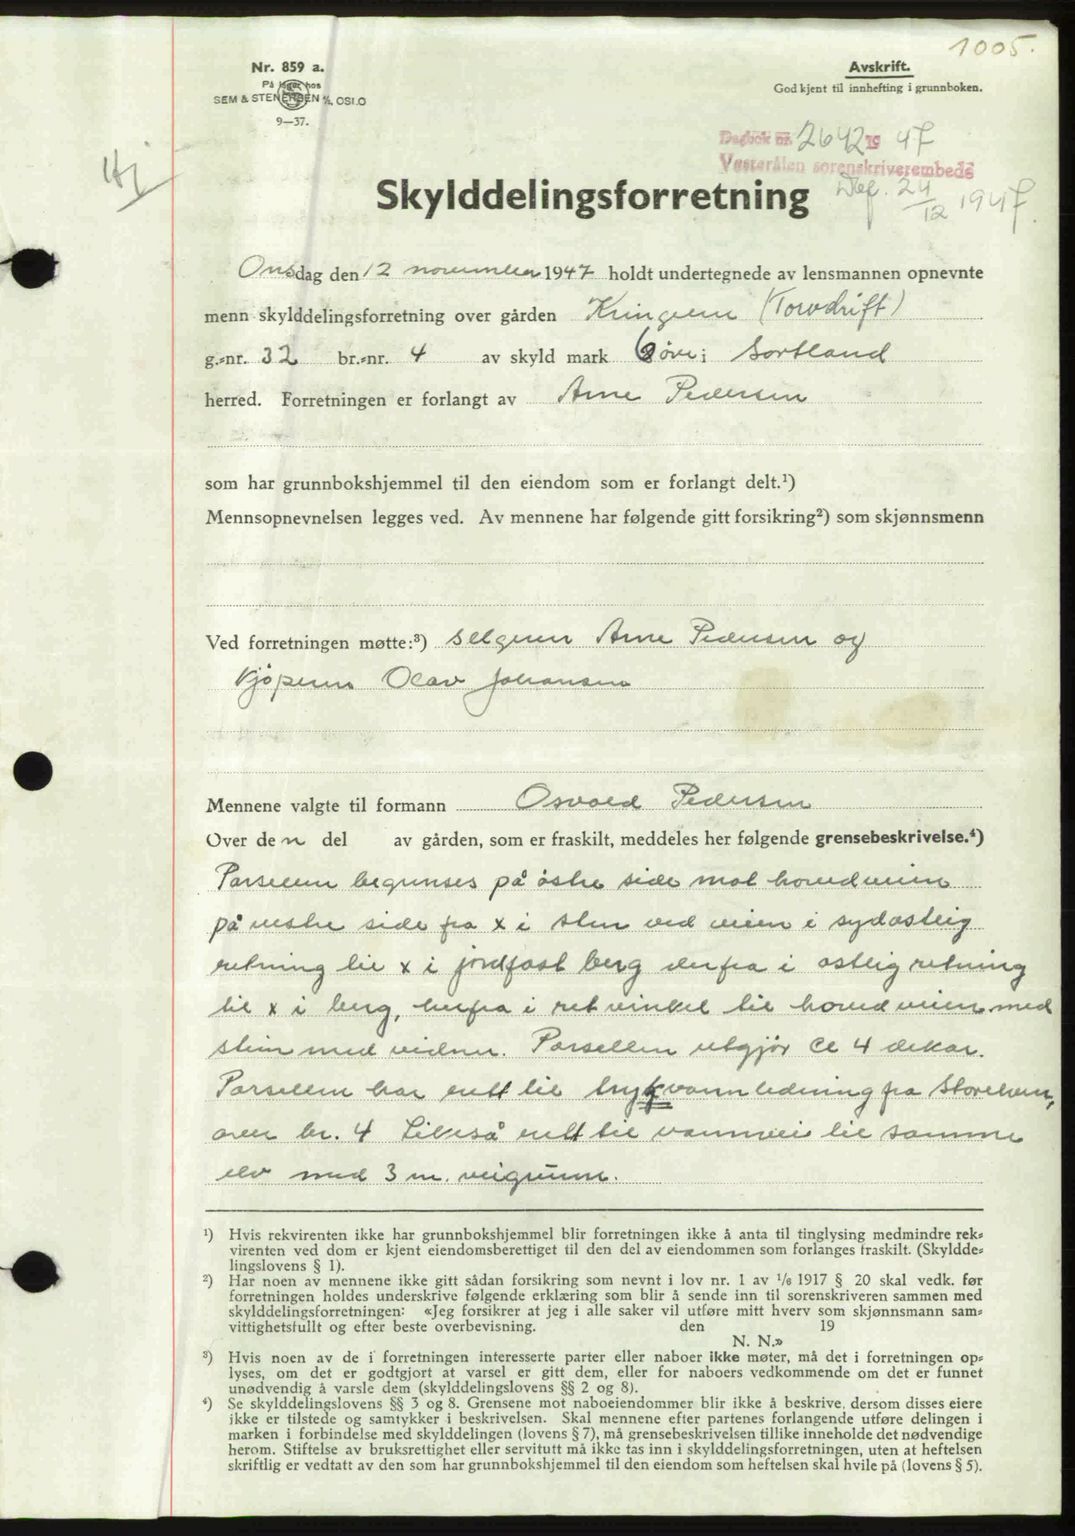 1005.
Nr. 859 a.
På lager hos
SEM & STENERSEN A/S, OSLO
9—37.
Avskrift.
God kjent til innhefting i grunnboken.
Dagbok nr. 2642 19 47
Vesterålen sorenskriverembede
24/12 1947.
Skylddelingsforretning
Onsdag den 12 november 1947 holdt undertegnede av lensmannen opnevnte
menn skylddelingsforretning over gården Kringeren (Torvdrift)
g.-nr. 32 br.-nr. 4 av skyld mark øre i Sortland
herred. Forretningen er forlangt av Arne Pedersen
som har grunnbokshjemmel til den eiendom som er forlangt delt.¹)
Mennsopnevnelsen legges ved. Av mennene har følgende gitt forsikring²) som skjønnsmenn
Ved forretningen møtte:³) selgeren Arne Pedersen og
kjøperen Olav Johansen
Mennene valgte til formann Osvald Pedersen
Over den del av gården, som er fraskilt, meddeles her følgende grensebeskrivelse.⁴)
Parsellen begrenses på østre side mot hovedveien
på vestre side fra x i sten ved veien i sydøstlig
retning til x i jordfast berg derfra i østlig retning
til x i berg, herfra i ret vinkel til hovedveien med
sten med vidner. Parsellen utgjør ca 4 dekar.
Parsellen har rett til trykvannledning fra Storelven,
over br. 4 Likeså rett til vannvei til samme
elv med 3 m. veigrunn.
¹) Hvis rekvirenten ikke har grunnbokshjemmel blir forretningen ikke å anta til tinglysing medmindre rek-
virenten ved dom er kjent eiendomsberettiget til den del av eiendommen som forlanges fraskilt. (Skyldde-
lingslovens § 1).
²) Har noen av mennene ikke gitt sådan forsikring som nevnt i lov nr. 1 av ¹/₆ 1917 § 20 skal vedk. før
forretningen holdes underskrive følgende erklæring som blir å sende inn til sorenskriveren sammen med
skylddelingsforretningen: «Jeg forsikrer at jeg i alle saker vil utføre mitt hverv som skjønnsmann sam-
vittighetsfullt og efter beste overbevisning. den 19
N. N.»
³) Hvis noen av de i forretningen interesserte parter eller naboer ikke møter, må det i forretningen op-
lyses, om det er godtgjort at varsel er gitt dem, eller for naboers vedkommende om det er funnet
unødvendig å varsle dem (skylddelingslovens §§ 2 og 8).
⁴) Se skylddelingslovens §§ 3 og 8. Grensene mot naboeiendommer blir ikke å beskrive, dersom disses eiere
ikke er tilstede og samtykker i beskrivelsen. Skal mennene efter partenes forlangende utføre delingen i
marken i forbindelse med skylddelingen (lovens § 7), må grensebeskrivelsen tillike inneholde det nødvendige
herom. Stiftelse av bruksrettighet eller servitutt må ikke tas inn i skylddelingsforretningen, uten at heftelsen
skriftlig er vedtatt av den som har grunnbokshjemmel til den eiendom som heftelsen skal hvile på (lovens § 5).